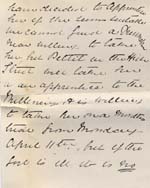 have decided to apprentice
her if the terms suitable
we cannot find a
near willing to take
her but Pettet in the High
Street will take her
as an apprentice to the
Millinery. He is willing
to take her on a months
trial from Monday
April 11th but if the
cost is